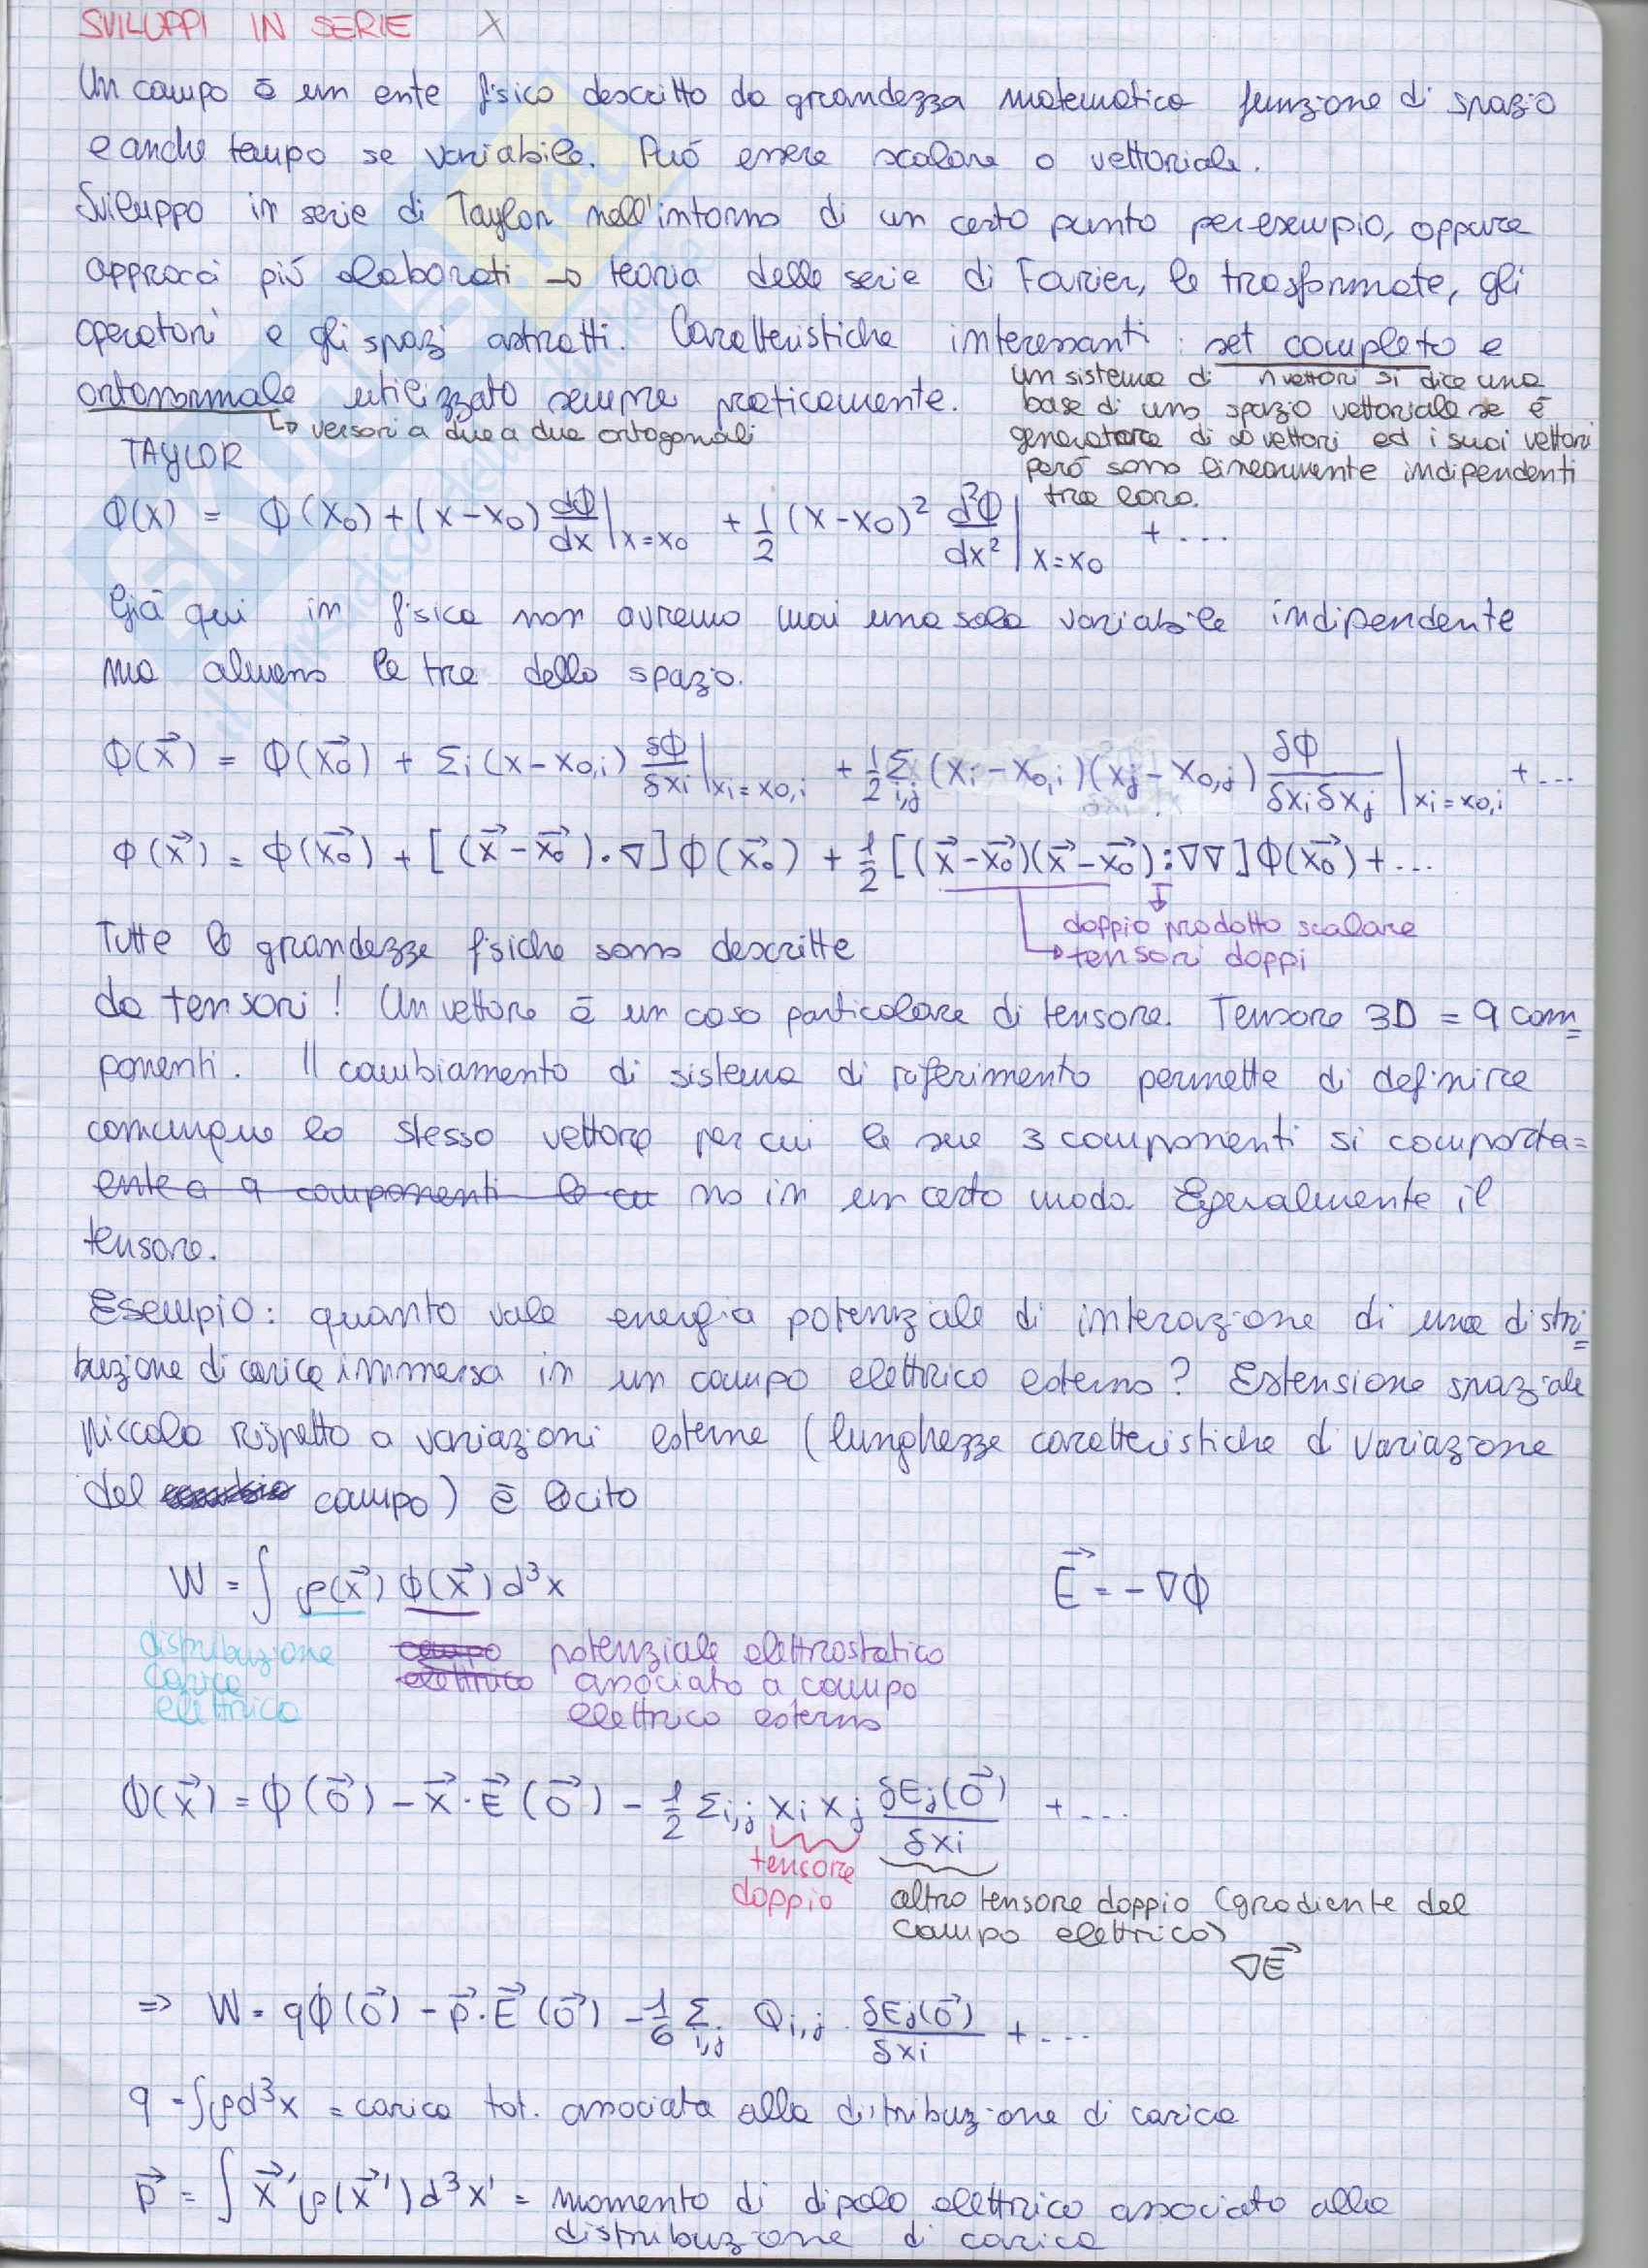 SVILUPPI IN SERIE X
Un campo è un ente fisico descritto da grandezza matematica funzione di spazio
e anche tempo se variabile. Può essere scalare o vettoriale.
Sviluppo in serie di Taylor nell'intorno di un certo punto per esempio, oppure
approcci più elaborati → teoria delle serie di Fourier, le trasformate, gli
operatori e gli spazi astratti. Caratteristiche interessanti: set completo e
ortonormale utilizzato sempre praticamente.
↳ versori a due a due ortogonali
un sistema di n vettori si dice una
base di uno spazio vettoriale se è
generatore di ∞ vettori ed i suoi vettori
però sono linearmente indipendenti
tra loro.
TAYLOR
Φ(x) = Φ(x₀) + (x-x₀) dΦ/dx |x=x₀ + 1/2 (x-x₀)² d²Φ/dx² |x=x₀ + ...
Già qui in fisica non avremo mai una sola variabile indipendente
ma almeno le tre dello spazio.
Φ(x⃗) = Φ(x⃗₀) + Σi (x-x₀,i) δΦ/δxi |xi=x₀,i + 1/2 Σi,j (xi-x₀,i)(xj-x₀,j) δΦ/δxiδxj |xi=x₀,i + ...
Φ(x⃗) = Φ(x⃗₀) + [(x⃗-x⃗₀)·∇]Φ(x⃗₀) + 1/2 [(x⃗-x⃗₀)(x⃗-x⃗₀):∇∇]Φ(x⃗₀) + ...
doppio prodotto scalare
→ tensori doppi
Tutte le grandezze fisiche sono descritte
da tensori! Un vettore è un caso particolare di tensore. Tensore 3D = 9 com=
ponenti. Il cambiamento di sistema di riferimento permette di definire
comunque lo stesso vettore per cui le sue 3 componenti si comporta=
ente a 9 componenti le cu no in un certo modo. Egualmente il
tensore.
Esempio: quanto vale energia potenziale di interazione di una distri=
buzione di carica immersa in un campo elettrico esterno? Estensione spaziale
piccola rispetto a variazioni esterne (lunghezze caratteristiche di variazione
del campo) è lecito
W = ∫ ρ(x⃗) Φ(x⃗) d³x E⃗ = -∇Φ
distribuzione
carica
elettrica
campo
elettrico
potenziale elettrostatico
associato a campo
elettrico esterno
Φ(x⃗) = Φ(0⃗) - x⃗·E⃗(0⃗) - 1/2 Σi,j xi xj δEj(0⃗)/δxi + ...
tensore
doppio
altro tensore doppio (gradiente del
campo elettrico)
∇E⃗
⇒ W = qΦ(0⃗) - p⃗·E⃗(0⃗) - 1/6 Σi,j Qi,j · δEj(0⃗)/δxi + ...
q = ∫ρd³x = carica tot. associata alla distribuzione di carica
p⃗ = ∫ x⃗'ρ(x⃗')d³x' = momento di dipolo elettrico associato alla
distribuzione di carica